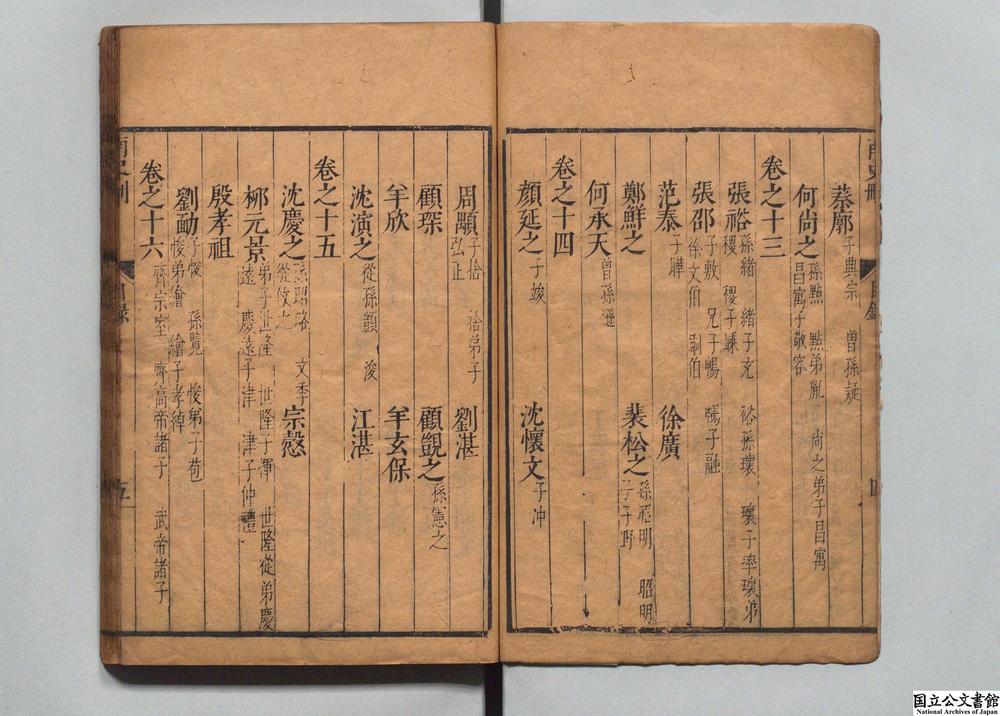 蔡廓 子興宗 曾孫凝
何尚之 孫點 點弟胤 尚之弟子昌㝢 昌㝢子敬容
卷之十三
張裕 孫緒 緒子充 裕孫瓌 瓌子率 瓌弟稷 稷子嵊
張邵 子敷 兄子暢 暢子融 徐文伯 嗣伯
范泰 子曄 徐廣
鄭鮮之 裴松之 孫昭明 昭明子子野
何承天 曾孫遜
卷之十四
顏延之 子竣 沈懷文 子冲
周顒 子捨 捨弟子弘正 劉湛
顧琛 顧覬之 孫憲之
羊欣 羊玄保
沈演之 從孫顗 浚 江湛
卷之十五
沈慶之 孫昭略 文季 從攸之 宗慤
柳元景 弟子世隆 世隆子惲 世隆從弟慶遠 慶遠子津 津子仲禮
殷孝祖
劉勔 子悛 孫覽 悛弟子苞 悛弟繪 繪子孝綽
卷之十六 齊宗室 齊高帝諸子 武帝諸子
南史刪 目錄 五
国立公文書館
National Archives of Japan